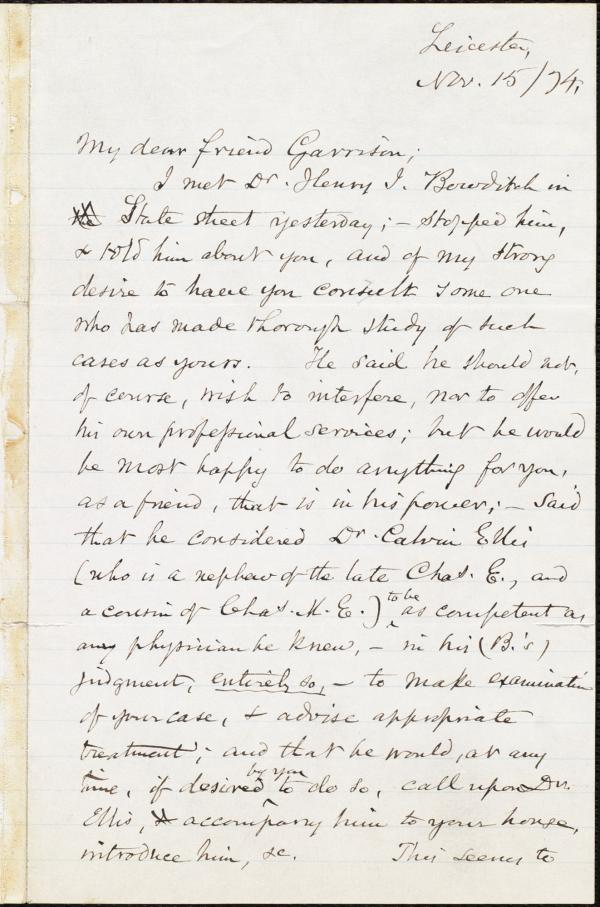 Leicester,
Nov. 15/74.
My dear friend Garrison;
I met Dr. Henry I. Bowditch in
State street yesterday; – stopped him,
& told him about you, and of my strong
desire to have you consult some one
who has made thorough study of such
cases as yours. He said he should not,
of course, wish to interfere, nor to offer
his own professional services; but he would
be most happy to do anything for you,
as a friend, that is in his power; – Said
that he considered Dr. Calvin Ellis
(who is a nephew of the late Chas. E., and
a cousin of Chas. M. E.) to be as competent as
any physician he knew, – in his (B.'s)
judgment, entirely so, – to make examination
of your case, & advise appropriate
treatment; and that he would, at any
time, if desired by you to do so, call upon Dr.
Ellis, & accompany him to your house,
introduce him, &c. This seems to